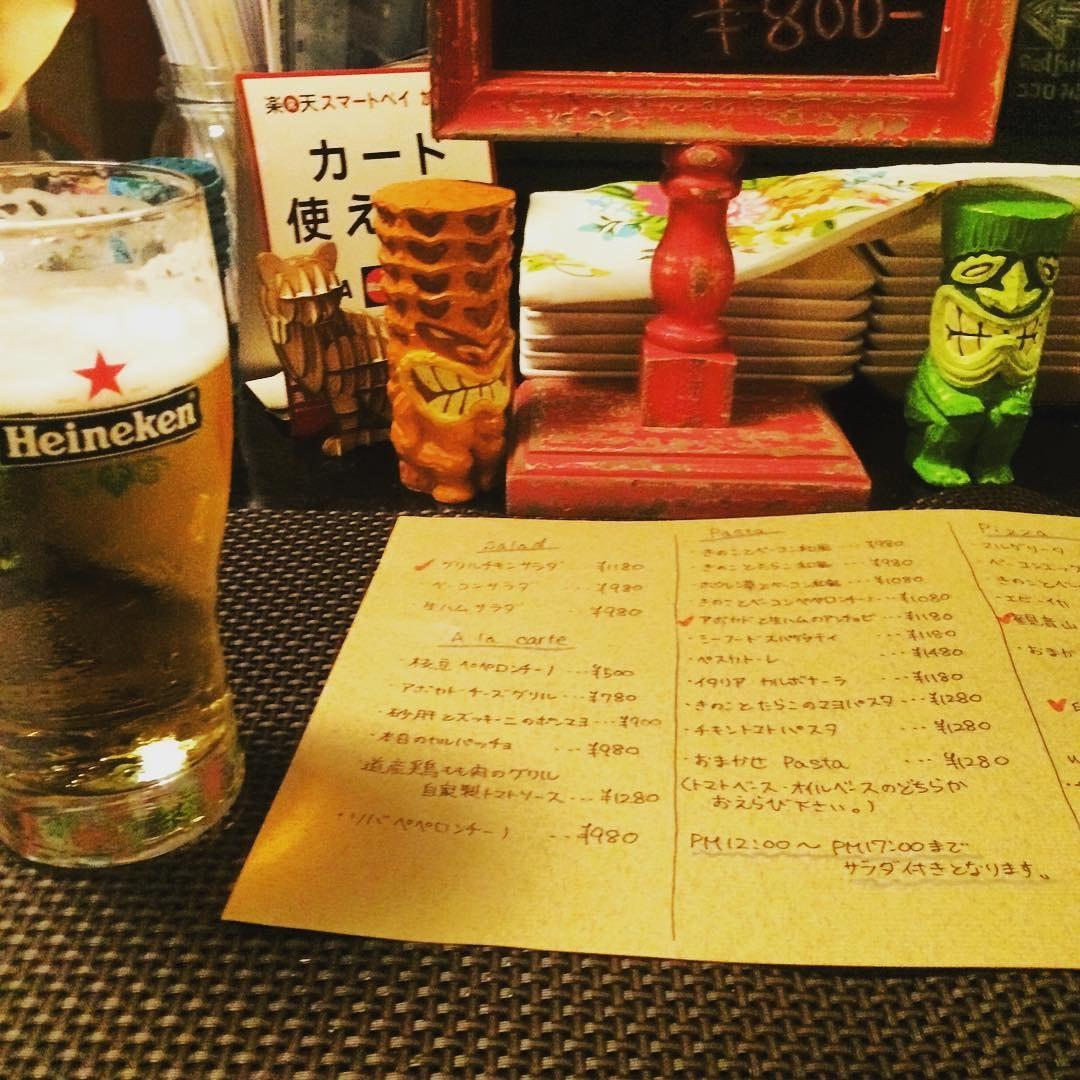 ¥800-
楽天スマートペイ
カート
使え
Heineken
Salad
グリルチキンサラダ ¥1180
ベーコンサラダ ¥980
生ハムサラダ ¥980
A la carte
・枝豆ペペロンチーノ ---¥500
・アボカドチーズグリル ---¥780
・砂肝とズッキーニのポンマヨ ---¥900
・本日のカルパッチョ ---¥980
道産鶏もも肉のグリル
自家製トマトソース ---¥1280
ペペロンチーノ ---¥980
Pasta
・きのことベーコン和風 ---¥980
・きのことたらこ和風 ---¥980
・ホウレン草とベーコン和風 ---¥1080
・きのことベーコンペペロンチーノ ---¥1080
・アボカドと生ハムのアンチョビ ---¥1180
・シーフードスパゲッティ ---¥1180
・ペスカトーレ ---¥1480
・イタリアカルボナーラ ---¥1180
・きのことたらこのマヨパスタ ---¥1280
・チキントマトパスタ ---¥1280
・おまかせ Pasta ---¥1280
(トマトベース・オイルベースのどちらか
おえらび下さい。)
PM12:00〜PM17:00まで
サラダ付きとなります。
Pizza
マルゲリータ
ベーコンエッグ
きのことベ
エビ・イカ
・おまか